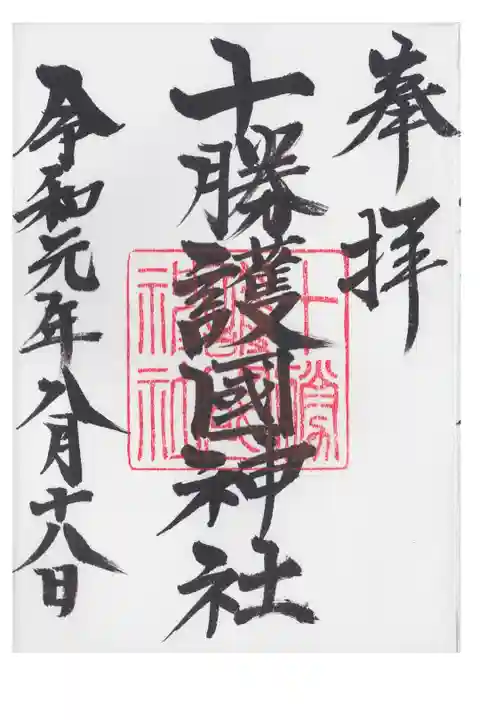 奉拝
十勝護國神社
十勝
護國
神社
令和元年八月十八日